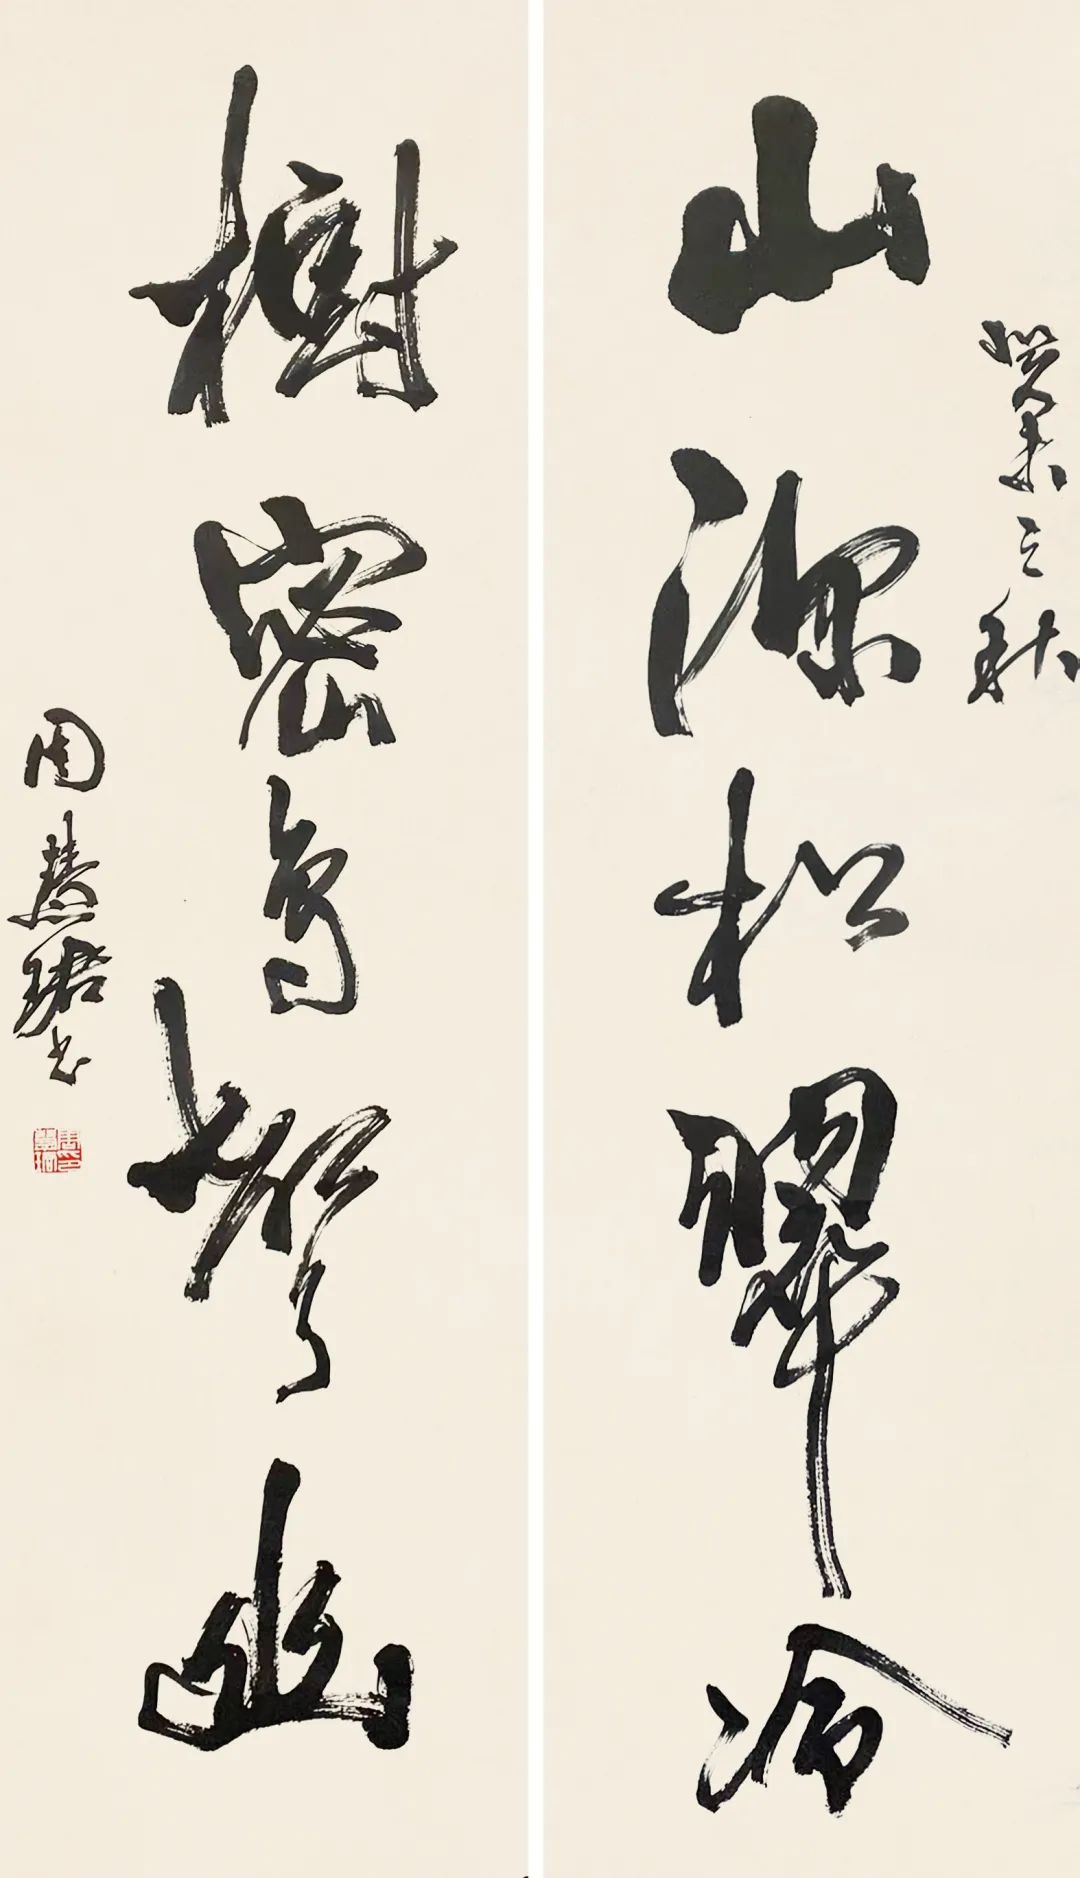 癸未之秋
山深松翠冷
樹密鳥聲幽
周慧珺书